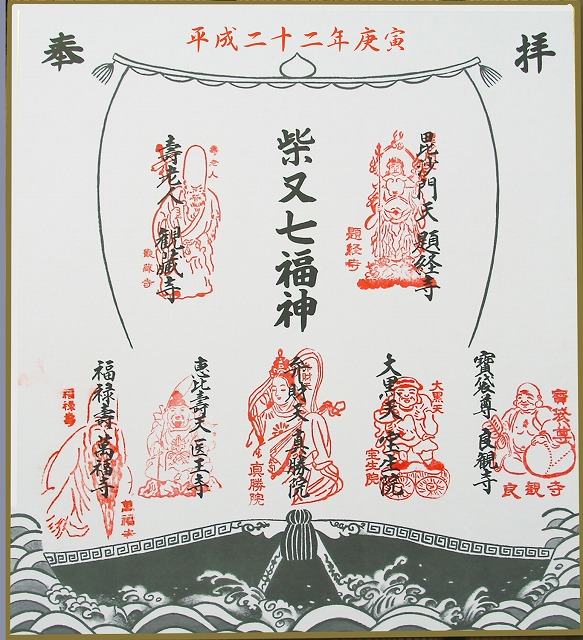 平成二十二年庚寅
奉
拝
柴又七福神
毘沙門天 題経寺
題経寺
壽老人 観蔵寺
壽老人
観蔵寺
寶袋尊 良観寺
寶袋尊
良観寺
大黒天 宝生院
大黒天
宝生院
弁財天 真勝院
弁財天
真勝院
恵比寿天 医王寺
福禄寿 萬福寺
福禄壽
萬福寺